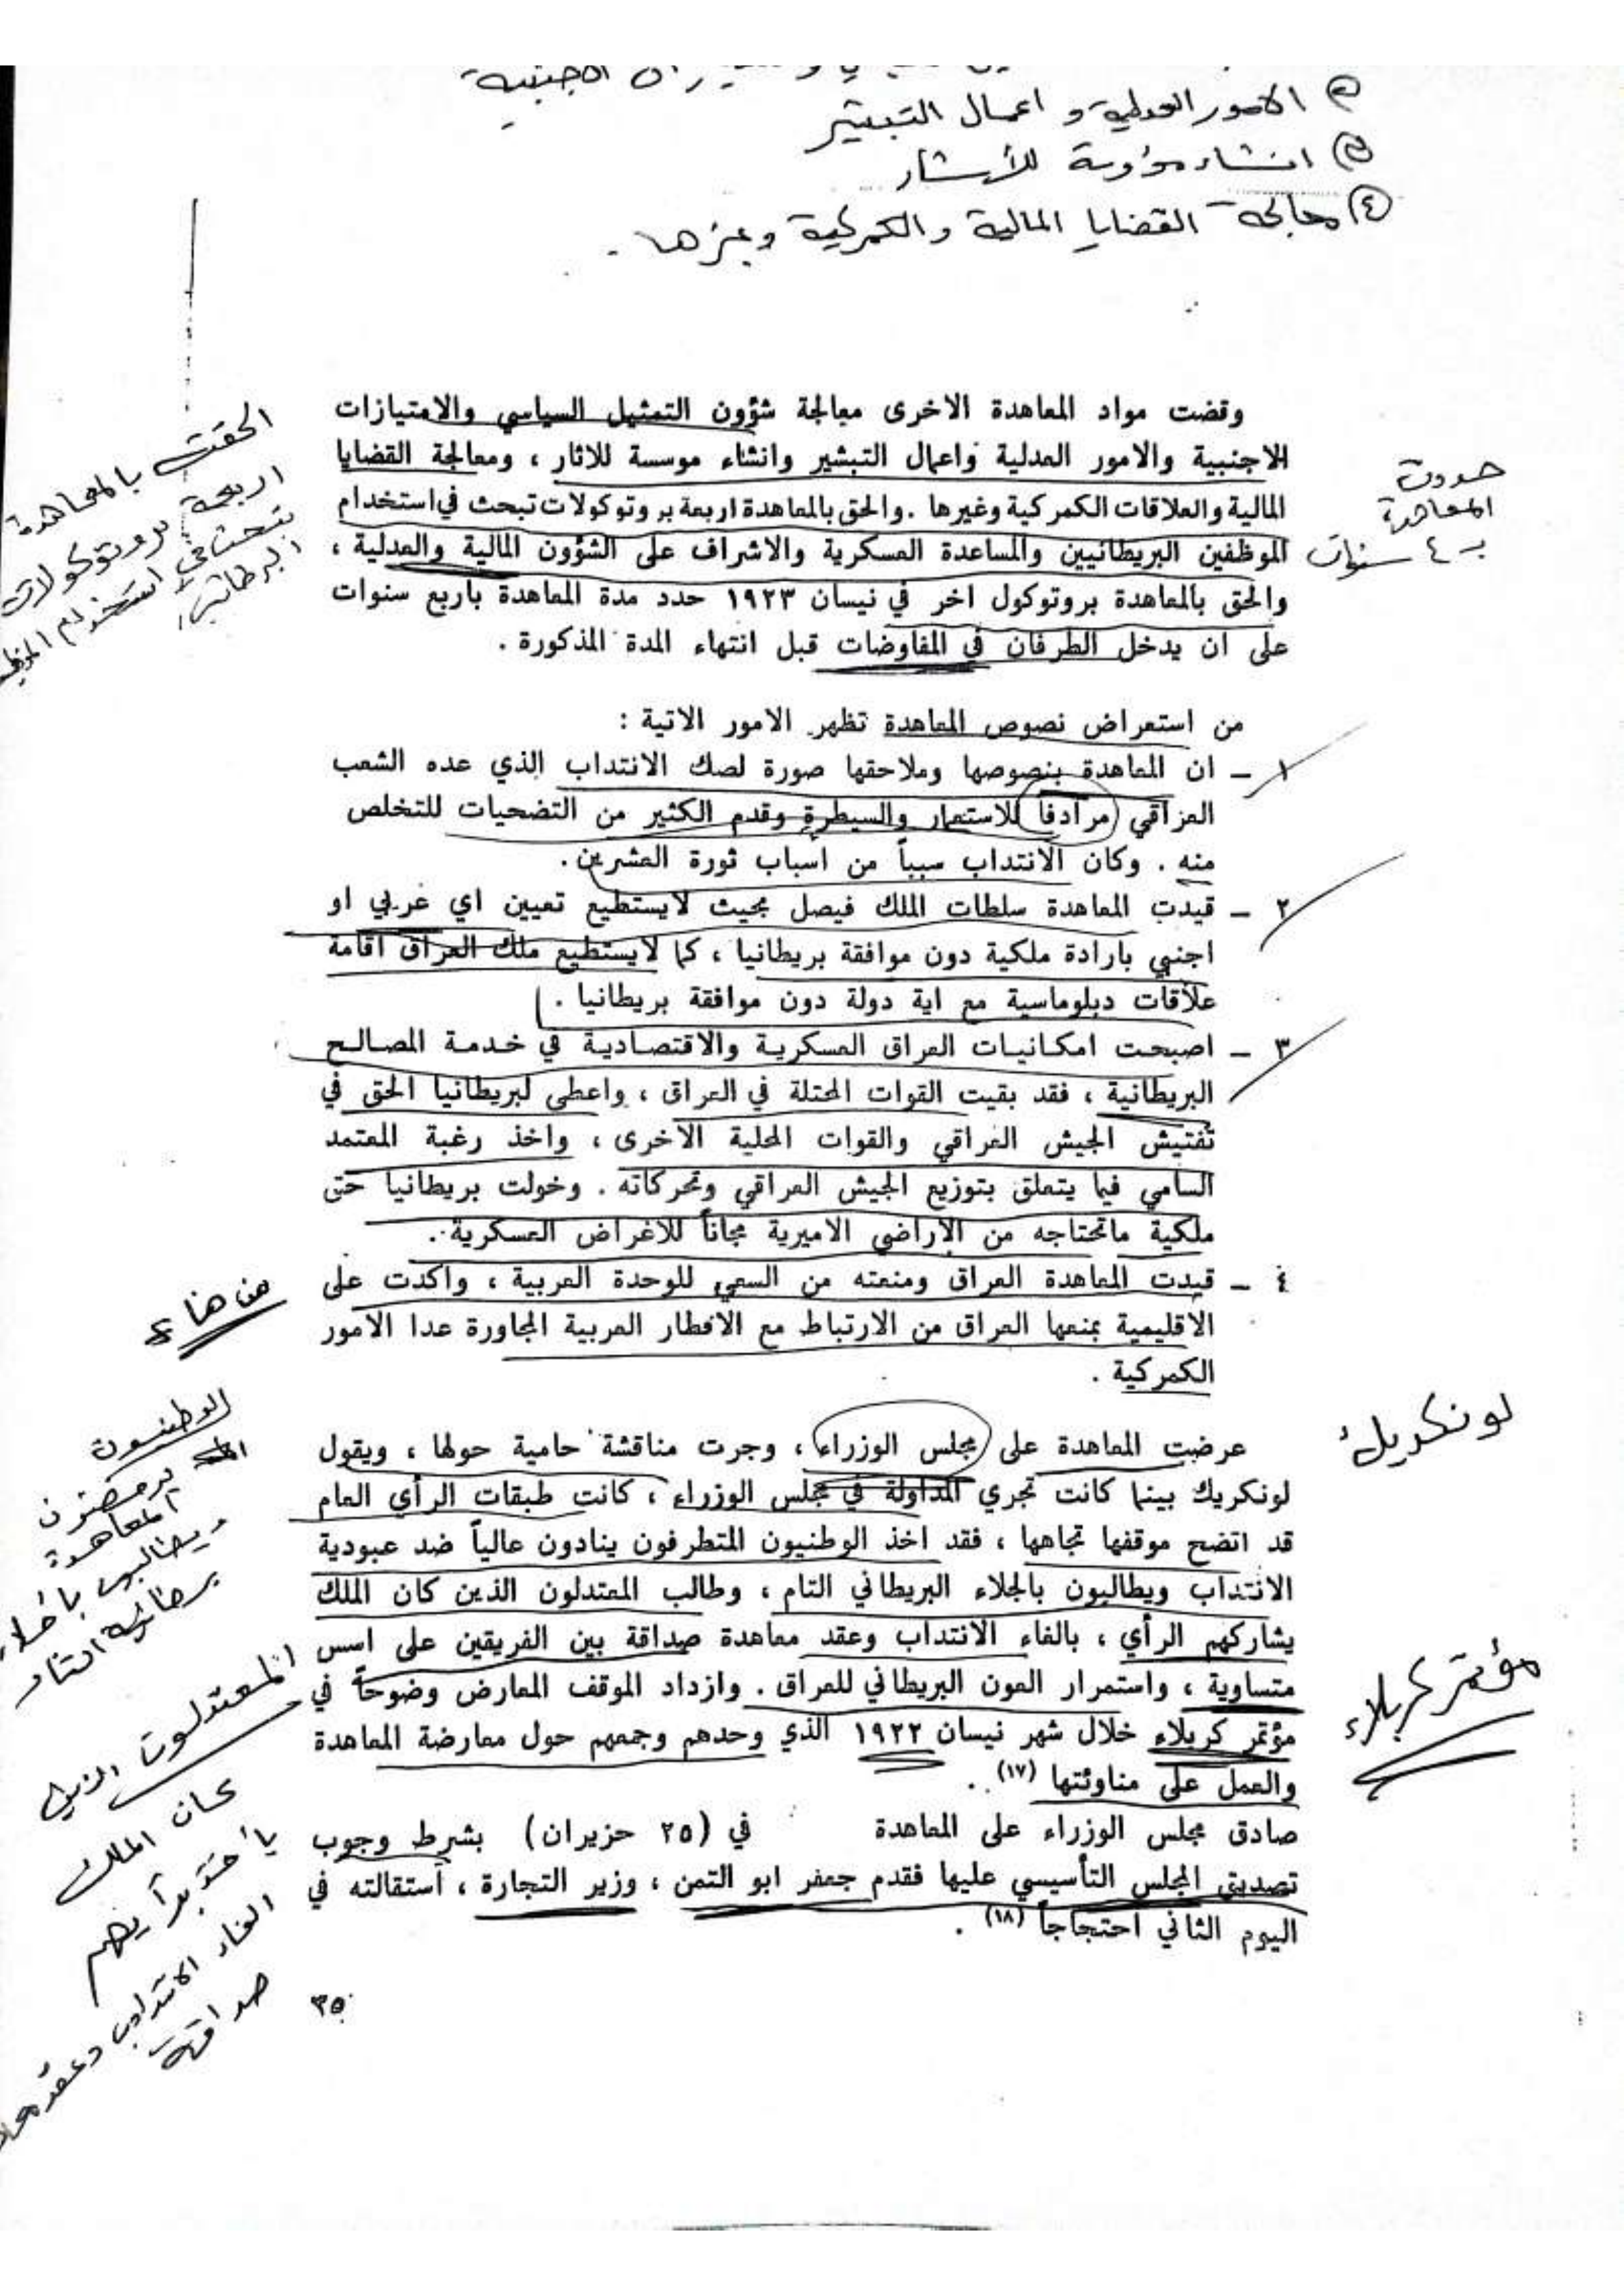 الاجنبية
② الامور العدلية و اعمال التبشير
③ انشاء مؤسسة للأثار
④ معالجة القضايا المالية والكمركية وغيرها .
وقضت مواد المعاهدة الاخرى معالجة شؤون التمثيل السياسي والامتيازات
الاجنبية والامور العدلية واعمال التبشير وانشاء موسسة للاثار ، ومعالجة القضايا
المالية والعلاقات الكمركية وغيرها . والحق بالمعاهدة اربعة بروتوكولات تبحث في استخدام
الموظفين البريطانيين والمساعدة العسكرية والاشراف على الشؤون المالية والعدلية ،
والحق بالمعاهدة بروتوكول اخر في نيسان ١٩٢٣ حدد مدة المعاهدة باربع سنوات
على ان يدخل الطرفان في المفاوضات قبل انتهاء المدة المذكورة .
الحقت بالمعاهدة
اربعة بروتوكولات
تبحث في استخدام
البريطاني
حددت
المعاهدة
بـ ٤ سنوات
من استعراض نصوص المعاهدة تظهر الامور الاتية :
١ – ان المعاهدة بنصوصها وملاحقها صورة لصك الانتداب الذي عده الشعب
العراقي مرادفاً للاستعمار والسيطرة وقدم الكثير من التضحيات للتخلص
منه . وكان الانتداب سبباً من اسباب ثورة العشرين .
٢ – قيدت المعاهدة سلطات الملك فيصل بحيث لايستطيع تعيين اي عربي او
اجنبي بارادة ملكية دون موافقة بريطانيا ، كما لايستطيع ملك العراق اقامة
علاقات دبلوماسية مع اية دولة دون موافقة بريطانيا .
٣ – اصبحت امكانيات العراق العسكرية والاقتصادية في خدمة المصالح
البريطانية ، فقد بقيت القوات المحتلة في العراق ، واعطى لبريطانيا الحق في
تفتيش الجيش العراقي والقوات المحلية الاخرى ، واخذ رغبة المعتمد
السامي فيما يتعلق بتوزيع الجيش العراقي وتحركاته . وخولت بريطانيا حق
ملكية ماتحتاجه من الاراضي الاميرية مجاناً للاغراض العسكرية .
٤ – قيدت المعاهدة العراق ومنعته من السعي للوحدة العربية ، واكدت على
الاقليمية بمنعها العراق من الارتباط مع الاقطار العربية المجاورة عدا الامور
الكمركية .
من هنا
عرضت المعاهدة على مجلس الوزراء ، وجرت مناقشة حامية حولها ، ويقول
لونكريك بينما كانت تجري المداولة في مجلس الوزراء ، كانت طبقات الرأي العام
قد اتضح موقفها تجاهها ، فقد اخذ الوطنيون المتطرفون ينادون عالياً ضد عبودية
الانتداب ويطالبون بالجلاء البريطاني التام ، وطالب المعتدلون الذين كان الملك
يشاركهم الرأي ، بالغاء الانتداب وعقد معاهدة صداقة بين الفريقين على اسس
متساوية ، واستمرار العون البريطاني للعراق . وازداد الموقف المعارض وضوحاً في
مؤتمر كربلاء خلال شهر نيسان ١٩٢٢ الذي وحدهم وجمعهم حول معارضة المعاهدة
والعمل على مناوئتها (١٧) .
صادق مجلس الوزراء على المعاهدة في (٢٥ حزيران) بشرط وجوب
تصديق المجلس التأسيسي عليها فقدم جعفر ابو التمن ، وزير التجارة ، استقالته في
اليوم الثاني احتجاجاً (١٨) .
لونكريك
مؤتمر كربلاء
الوطنيون
يرفضون
المعاهدة
ويطالبون
المعتدلون الذين
كان الملك
يأخذ برأيهم
الغاء الانتداب وعقد
صداقة
٣٥